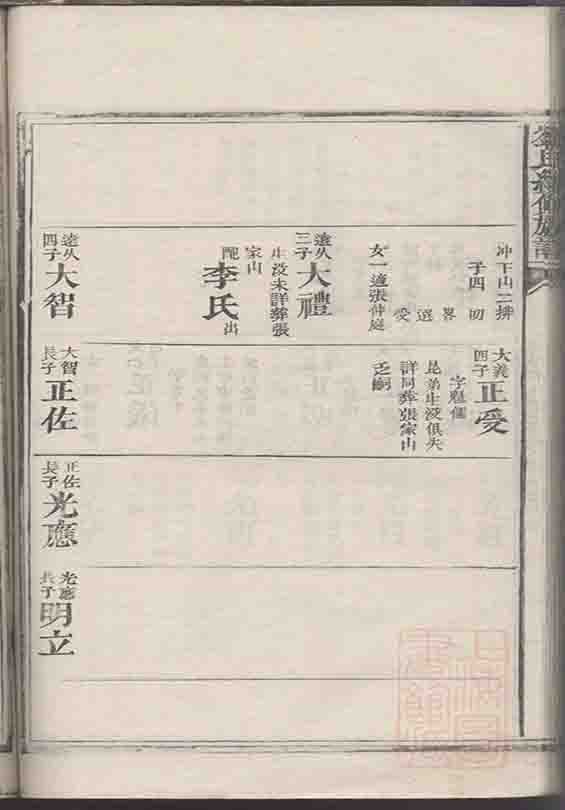 冲下山三排
子四 切
畧
選
受
女一適張仲庭
遠久三子 大禮
生沒未詳葬張
家山
配 李氏 出
遠久四子 大智
大義四子 正受
字
昆弟生沒俱失
詳同葬張家山
乏嗣
大智長子 正佐
正佐長子 光應
光應長子 明立